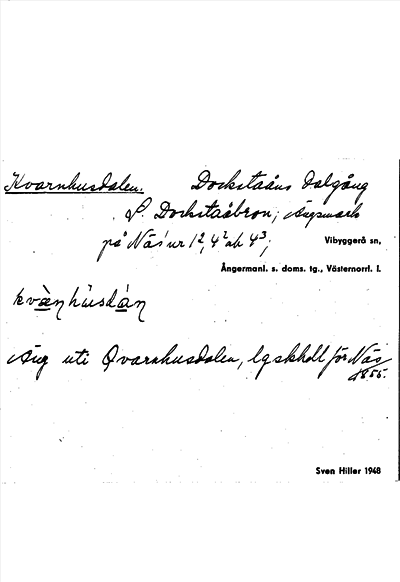 Kvarnhusdalen. Dockstaåns dalgång
S. Dockstaåbron; ängsmark
på Näs' nr 1², 4² ab 4³;
Vibyggerå sn,
Ångermanl. s. doms. tg., Västernorrl. l.
kvànhùsdán
Äng uti Qvarnhusdalen, lgskholl för Näs
1855.
Sven Hiller 1948